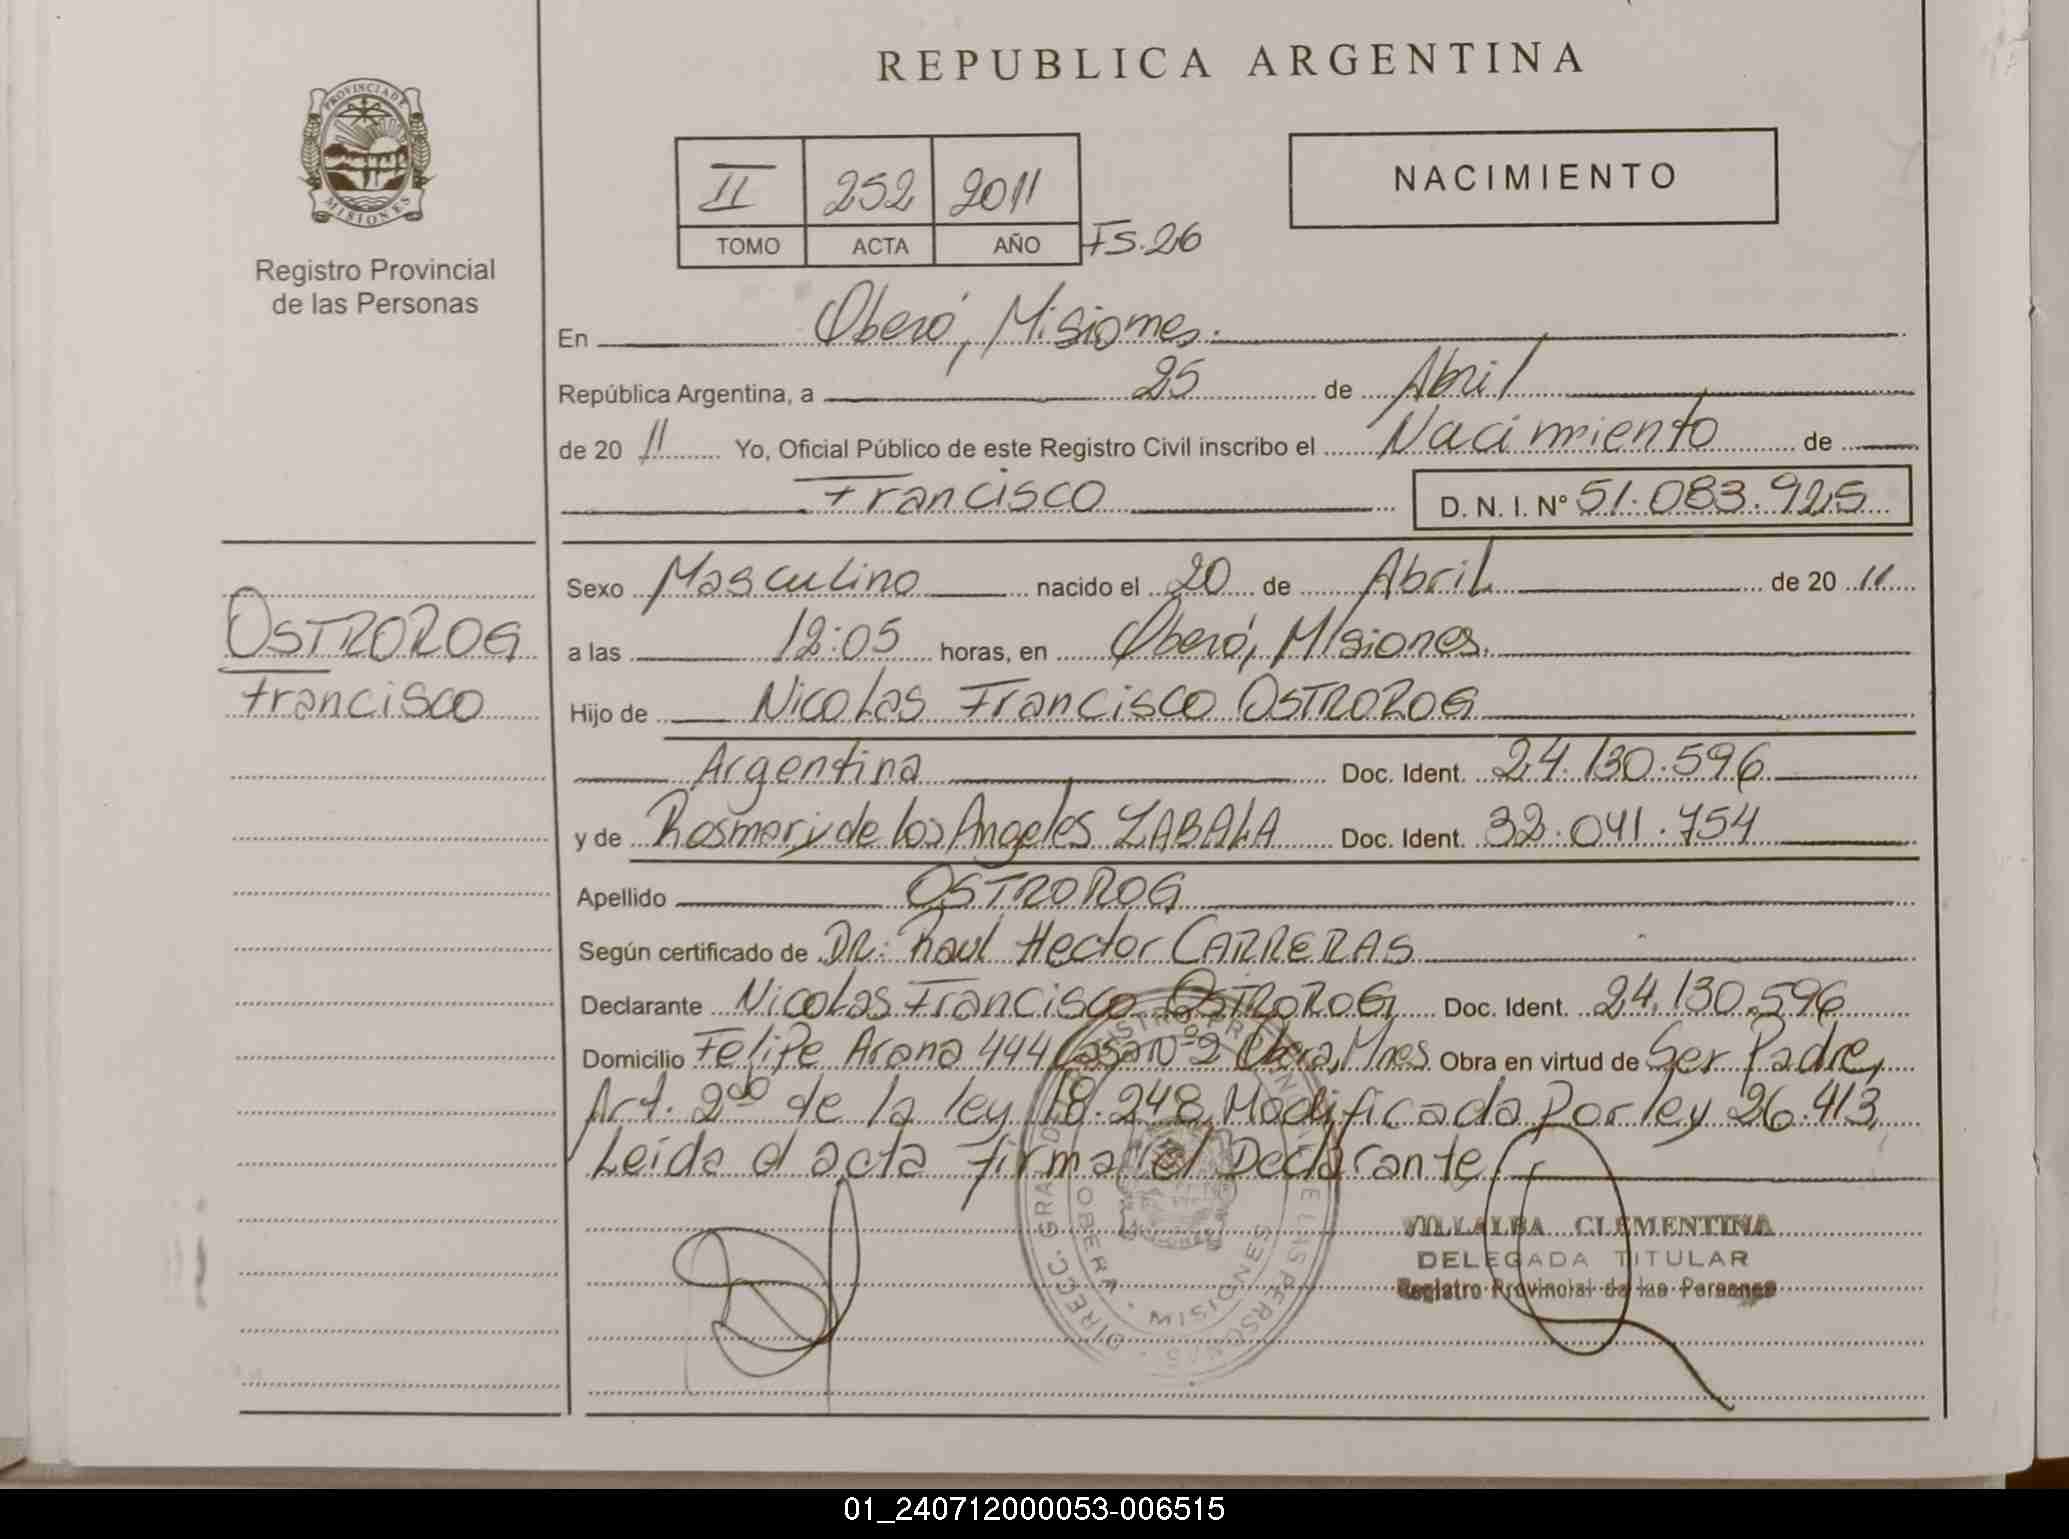 REPUBLICA ARGENTINA
PROVINCIA DE
MISIONES
Registro Provincial
de las Personas
II 252 2011
TOMO ACTA AÑO Fs. 26
NACIMIENTO
En Oberá, Misiones.
República Argentina, a 25 de Abril
de 20 11 Yo, Oficial Público de este Registro Civil inscribo el Nacimiento de
Francisco D. N. I. Nº 51.083.925
OSTROROG
Francisco
Sexo Masculino nacido el 20 de Abril de 20 11
a las 12:05 horas, en Oberá, Misiones.
Hijo de Nicolas Francisco OSTROROG
Argentina Doc. Ident. 24.130.596
y de Rosmery de los Angeles ZABALA Doc. Ident. 32.041.754
Apellido OSTROROG
Según certificado de DR. Raul Hector CARRERAS
Declarante Nicolas Francisco OSTROROG Doc. Ident. 24.130.596
Domicilio Felipe Arana 444 Casa Nº 2 Obera, Mnes Obra en virtud de Ser Padre,
Art. 2do de la ley 18.248, Modificada Por ley 26.413,
Leida el acta firma el Declarante
VILLALBA CLEMENTINA
DELEGADA TITULAR
Registro Provincial de las Personas
OBERA MISIONES
01_240712000053-006515